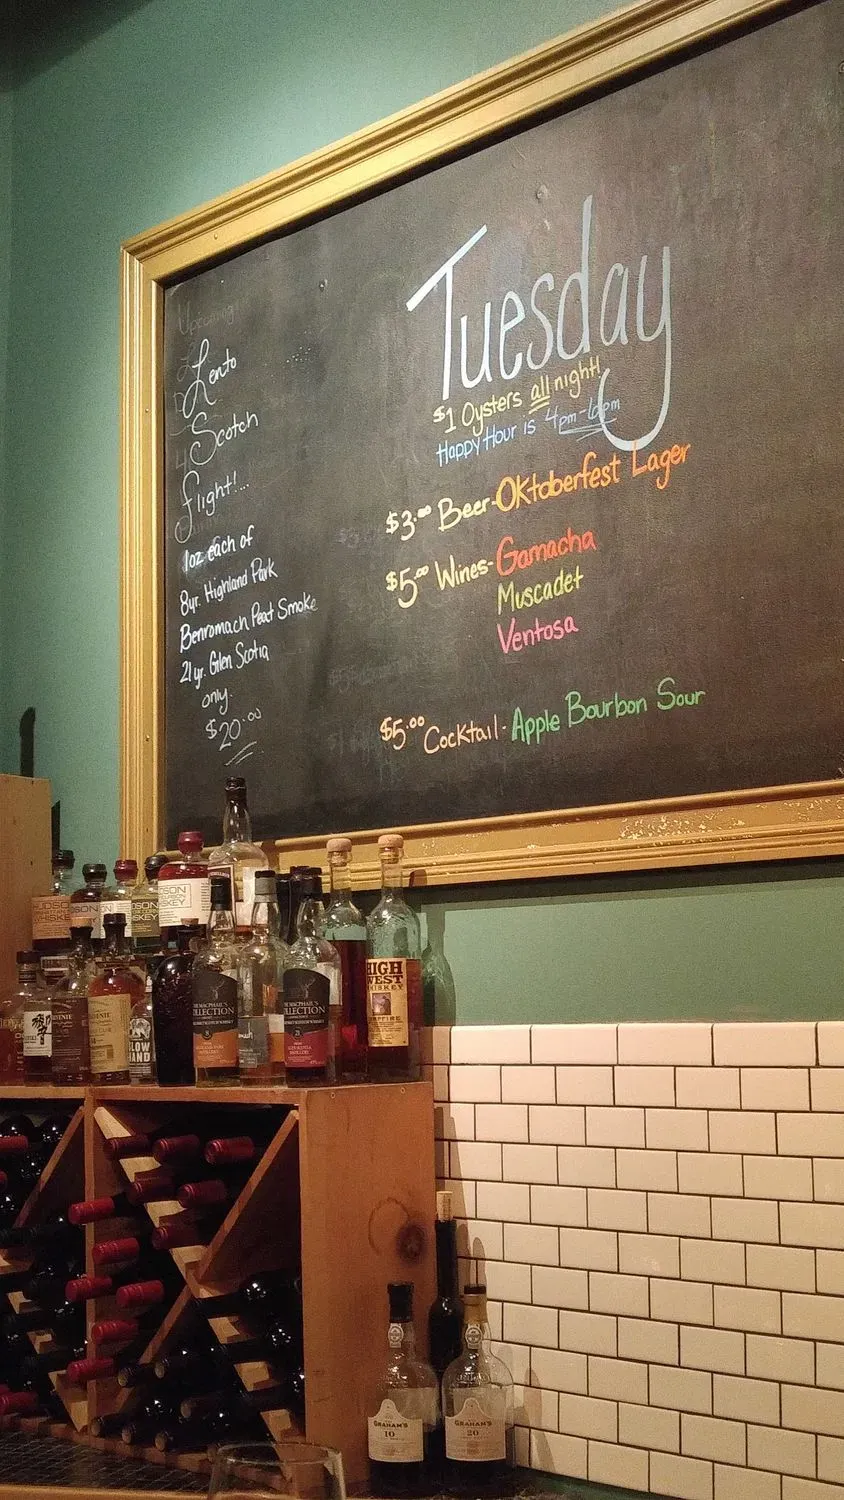 Upcoming!
Lento
Scotch
flight!...
1oz each of
8yr. Highland Park
Benromach Peat Smoke
21yr. Glen Scotia
only.
$20.00
Tuesday
$1 Oysters all night!
Happy Hour is 4pm-6pm
$3.00 Beer-OKtoberfest Lager
$5.00 Wines-Garnacha
Muscadet
Ventosa
$5.00 Cocktail-Apple Bourbon Sour
HIGH
WEST
WHISKEY
CAMPFIRE
COLLECTION
8
COLLECTION
21
SLOW
HAND
GRAHAM'S
10
GRAHAM'S
20